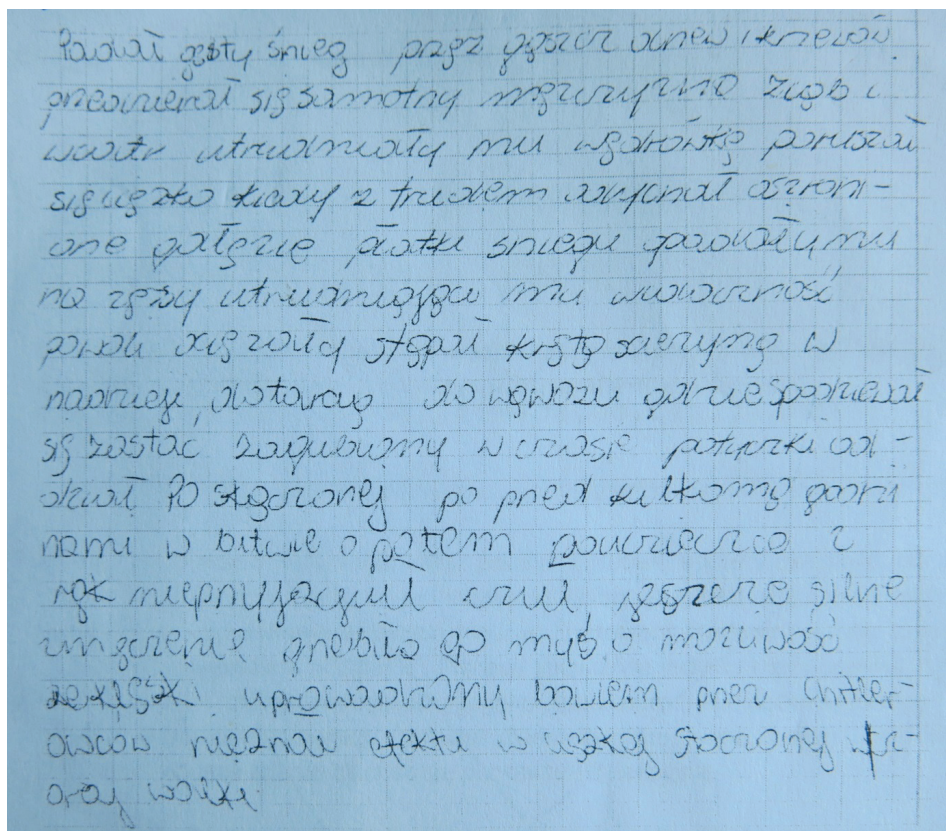 Padał gęsty śnieg przez gąszcz drzew i krzewów
przedzierał się samotny mężczyzna Ziąb i
wiatr utrudniały mu wędrówkę poruszał
się ciężko kiedy z trudem odginał oszroni-
one gałęzie płatki śniegu spadały mu
na rzęsy utrudniając mu widoczność
powoli stąpał krętą w
nadzieji, dotarcia do wąwozu gdzie spodziewał
się zastać zagubiony w czasie potyczki od-
dział Po stoczonej po przed kilkoma godzi
nami w bitwie o potem ucieczce z
rąk nieprzyjacieli czuł, jeszcze silne
zmęczenie gnębiła go myśl o możliwość
klęski uprowadzony bowiem przez hitler-
owców nieznał efektu w ciężkiej stoczonej
walki.